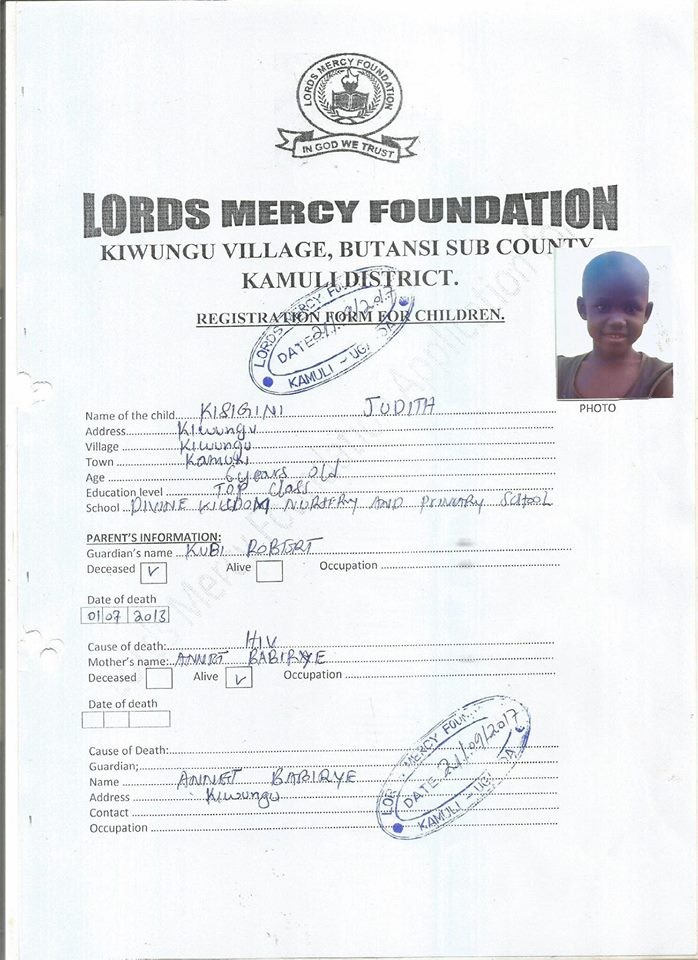 LORDS MERCY FOUNDATION
IN GOD WE TRUST
LORDS MERCY FOUNDATION
KIWUNGU VILLAGE, BUTANSI SUB COUNTY
KAMULI DISTRICT.
REGISTRATION FORM FOR CHILDREN.
LORDS MERCY FOU
DATE 21/09/2017
KAMULI - UGANDA
PHOTO
Name of the child KISIGINI JUDITH
Address Kiwungu
Village Kiwungu
Town Kamuli
Age 6 years old
Education level TOP Class
School DIVINE KINGDOM NURSERY AND PRIMARY SCHOOL
PARENT'S INFORMATION:
Guardian's name KUBI ROBERT
Deceased ✓ Alive Occupation
Date of death
01 07 2013
Cause of death: HIV
Mother's name: ANNET BABIRYE
Deceased Alive ✓ Occupation
Date of death
Cause of Death:
Guardian;
Name ANNET BABIRYE
Address Kiwungu
Contact
Occupation
LORDS MERCY FOUN
DATE 21/09/2017
KAMULI - UGANDA